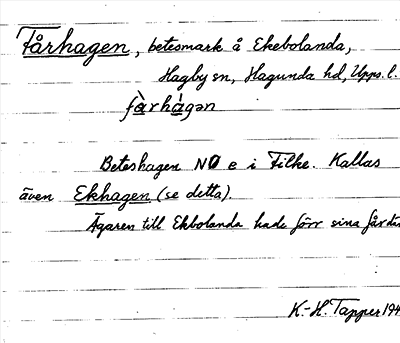 Fårhagen, betesmark å Ekebolanda,
Hagby sn, Hagunda hd, Upps. l.
fàrhàgən
Beteshagen NO e i Filke. Kallas
även Ekhagen (se detta).
Ägaren till Ekbolanda hade förr sina får
K.-H. Tapper 194